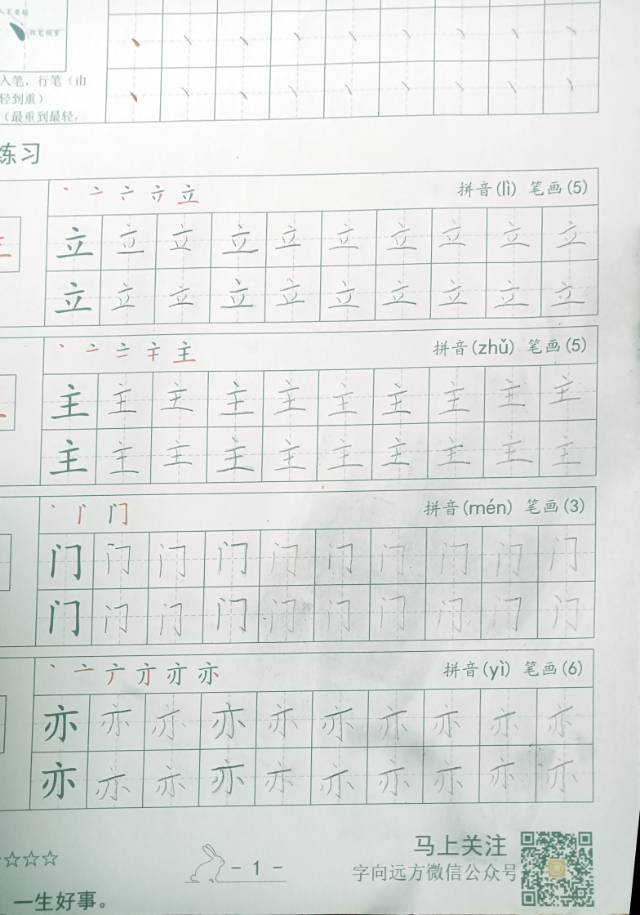 入笔，行笔（由
轻到重）
（最重到最轻，
练习
拼音(lì) 笔画(5)
立 立 立 立 立 立 立 立 立 立
立 立 立 立 立 立 立 立 立 立
主 拼音(zhǔ) 笔画(5)
主 主 主 主 主 主 主 主 主 主
主 主 主 主 主 主 主 主 主 主
门 拼音(mén) 笔画(3)
门 门 门 门 门 门 门 门 门 门
门 门 门 门 门 门 门 门 门 门
亦 拼音(yì) 笔画(6)
亦 亦 亦 亦 亦 亦 亦 亦 亦 亦
亦 亦 亦 亦 亦 亦 亦 亦 亦 亦
马上关注
- 1 -
字向远方微信公众号
一生好事。